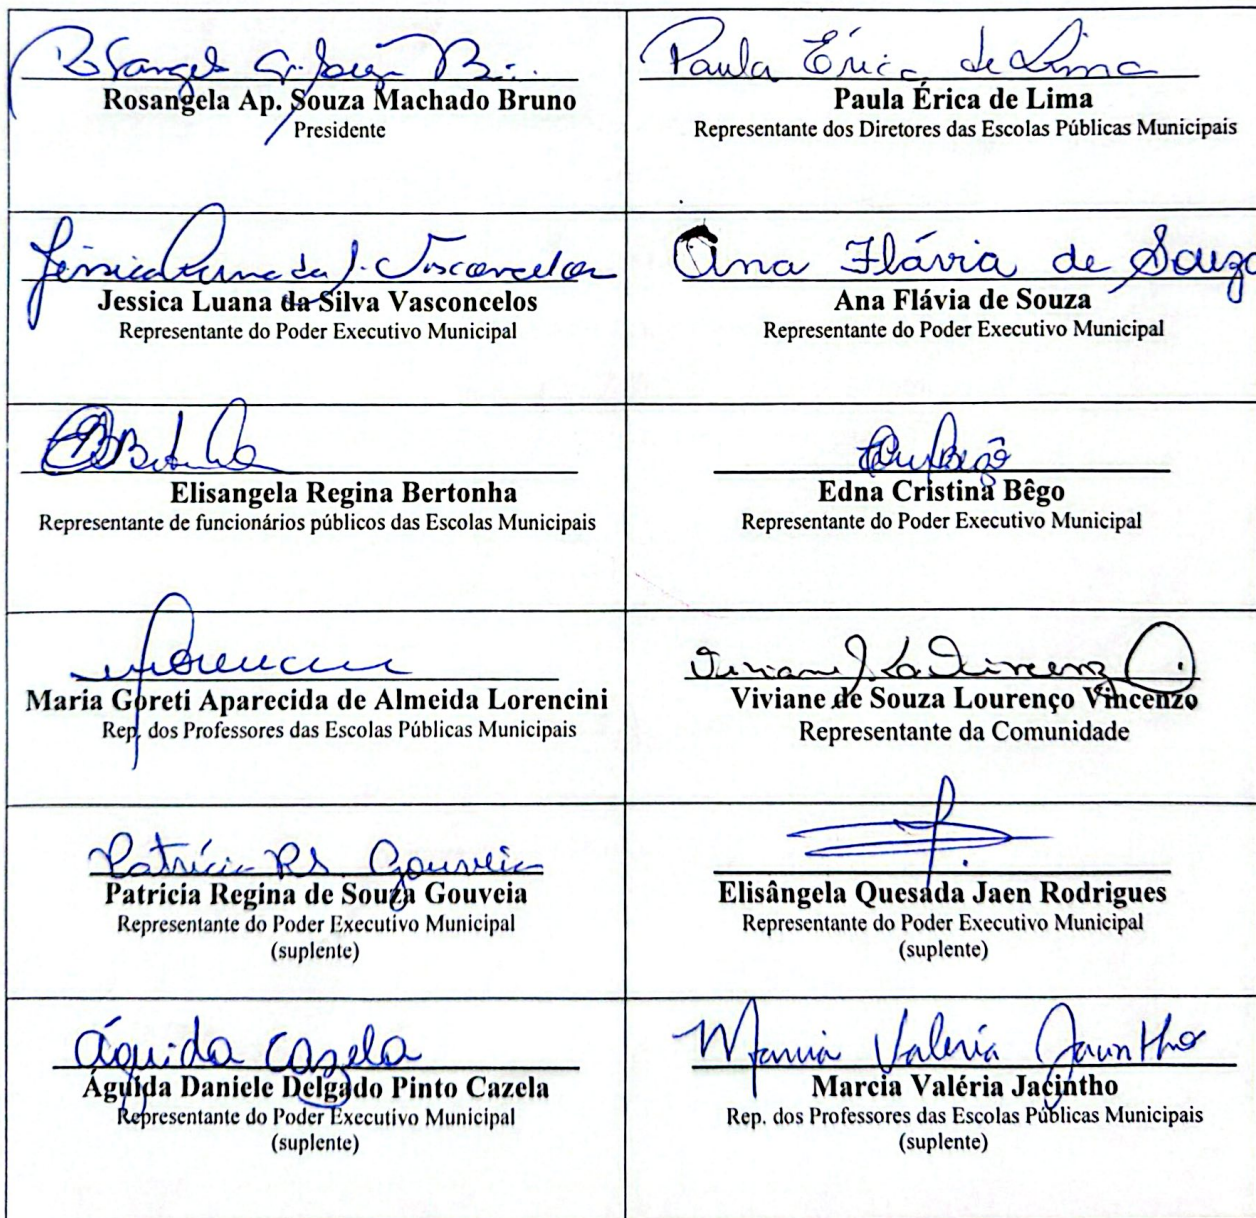 Rosangela Ap. Souza Machado Bruno
Presidente
Paula Érica de Lima
Paula Érica de Lima
Representante dos Diretores das Escolas Públicas Municipais
Jessica Luana da Silva Vasconcelos
Representante do Poder Executivo Municipal
Ana Flávia de Souza
Ana Flávia de Souza
Representante do Poder Executivo Municipal
Elisangela Regina Bertonha
Representante de funcionários públicos das Escolas Municipais
Edna Cristina Bêgo
Representante do Poder Executivo Municipal
Maria Goreti Aparecida de Almeida Lorencini
Rep. dos Professores das Escolas Públicas Municipais
Viviane de Souza Lourenço Vincenzo
Representante da Comunidade
Patrícia RS. Gouveia
Patricia Regina de Souza Gouveia
Representante do Poder Executivo Municipal
(suplente)
Elisângela Quesada Jaen Rodrigues
Representante do Poder Executivo Municipal
(suplente)
Águida Cazela
Águida Daniele Delgado Pinto Cazela
Representante do Poder Executivo Municipal
(suplente)
Marcia Valéria Jacintho
Marcia Valéria Jacintho
Rep. dos Professores das Escolas Públicas Municipais
(suplente)